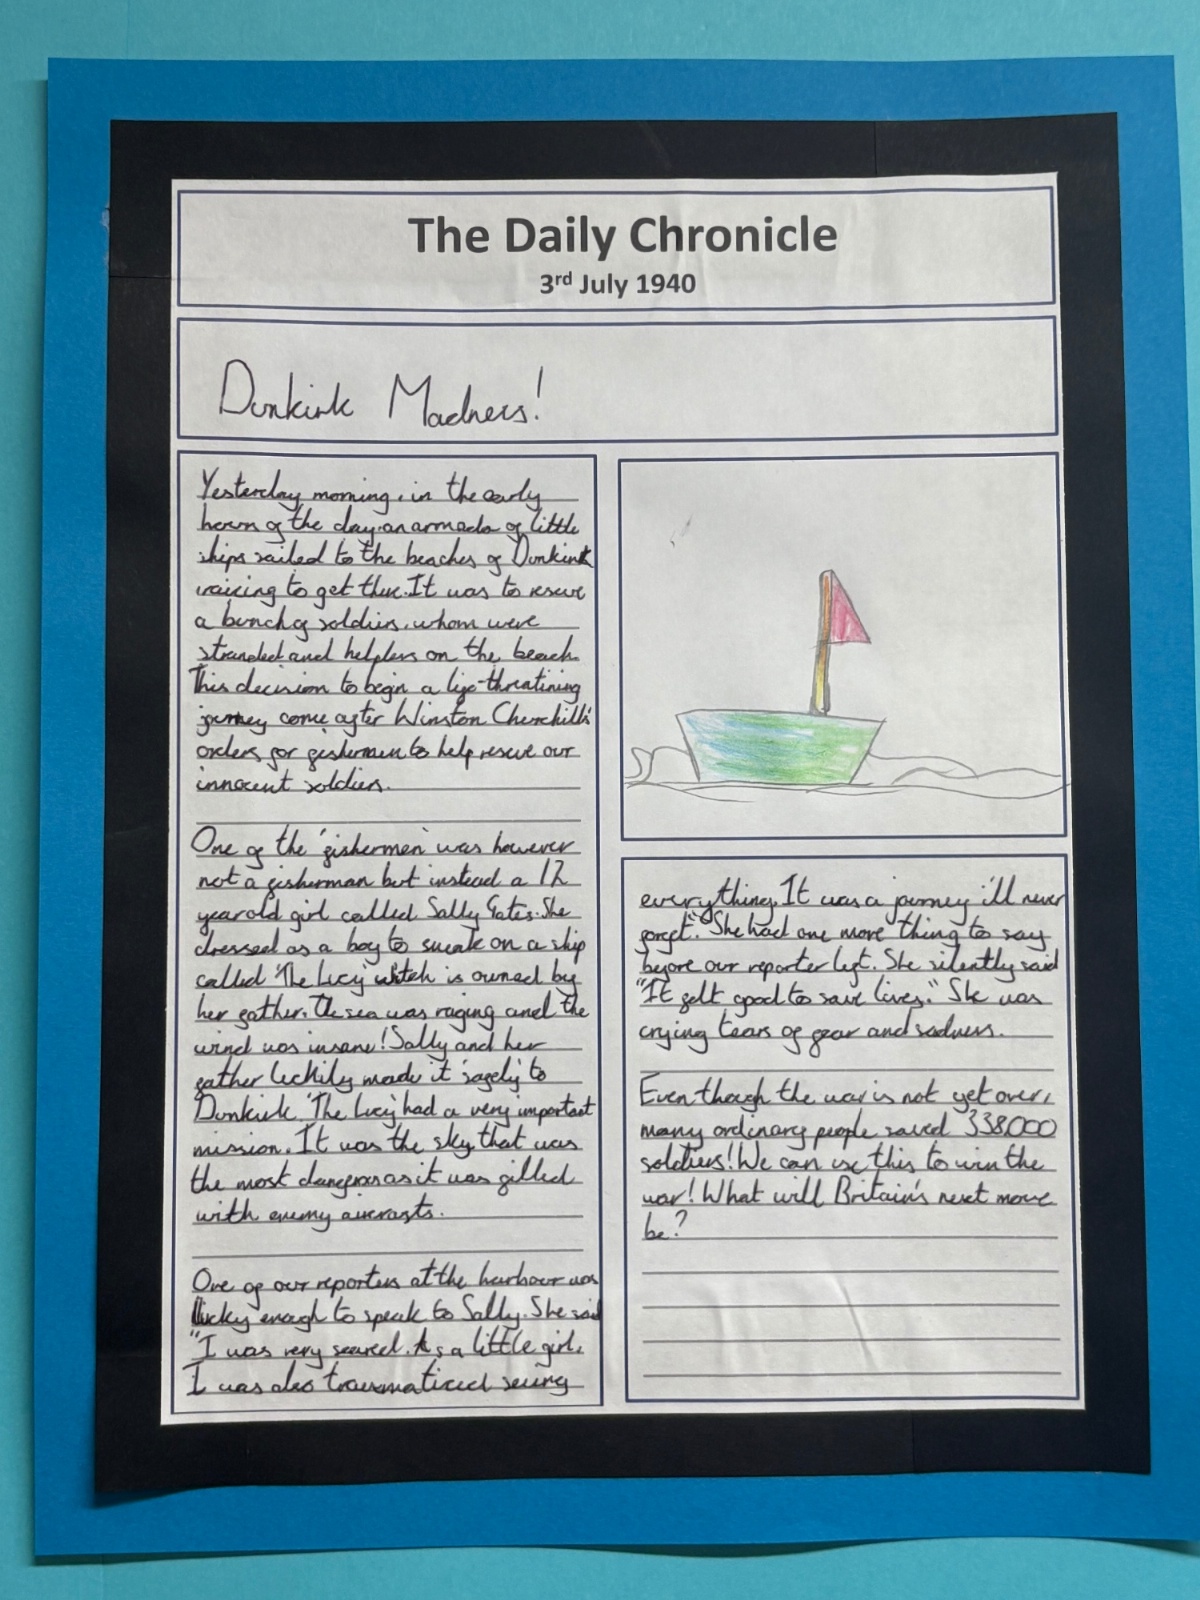 The Daily Chronicle
3rd July 1940
Dunkirk Madness!
Yesterday morning, in the early
hours of the day, an armada of little
ships sailed to the beaches of Dunkirk
to get there. It was to rescue
a bunch of soldiers, whom were
stranded and helpless on the beach.
This decision to begin a life-threatining
journey come after Winston Churchill's
orders for fishermen to help rescue our
innocent soldiers.
One of the 'fishermen' was however
not a fisherman but instead a 12
year old girl called Sally Gates. She
dressed as a boy to sneak on a ship
called 'The Lucy' which is owned by
her father. The sea was raging and the
wind was insane! Sally and her
father luckily made it 'safely' to
Dunkirk. 'The Lucy' had a very important
mission. It was the sky that was
the most dangerous as it was filled
with enemy aircrafts.
One of our reporters at the harbour was
lucky enough to speak to Sally. She said
"I was very scared. As a little girl,
I was also traumaticed seeing
everything. It was a journey i'll never
forget." She had one more thing to say
before our reporter left. She silently said
"It felt good to save lives." She was
crying tears of fear and sadness.
Even though the war is not yet over,
many ordinary people saved 338,000
soldiers! We can use this to win the
war! What will Britain's next move
be?